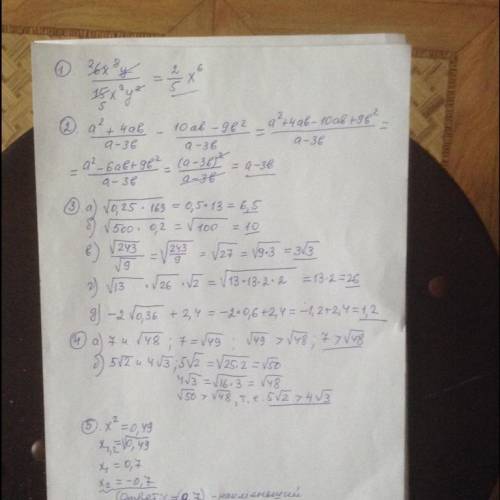 ① 26x⁸y / 15 5 x²y² = 2/5 x⁶
② a²+4ab / a-3b - 10ab-9b² / a-3b = a²+4ab-10ab+9b² / a-3b =
= a²-6ab+9b² / a-3b = (a-3b)² / a-3b = a-3b
③ а) √0,25·169 = 0,5·13 = 6,5
б) √500·0,2 = √100 = 10
в) √243 / √9 = √243/9 = √27 = √9·3 = 3√3
г) √13 · √26 · √2 = √13·13·2·2 = 13·2=26
д) -2√0,36 + 2,4 = -2·0,6+2,4 = -1,2+2,4=1,2
④ а) 7 и √48 ; 7=√49 ; √49 > √48 ; 7>√48
б) 5√2 и 4√3 ; 5√2 = √25·2 = √50
4√3 = √16·3 = √48
√50 > √48, т.е. 5√2 > 4√3
⑤ x² = 0,49
x₁,₂ = √0,49
x₁ = 0,7
x₂ = -0,7
(Ответ: x = 0,7) - наименьший